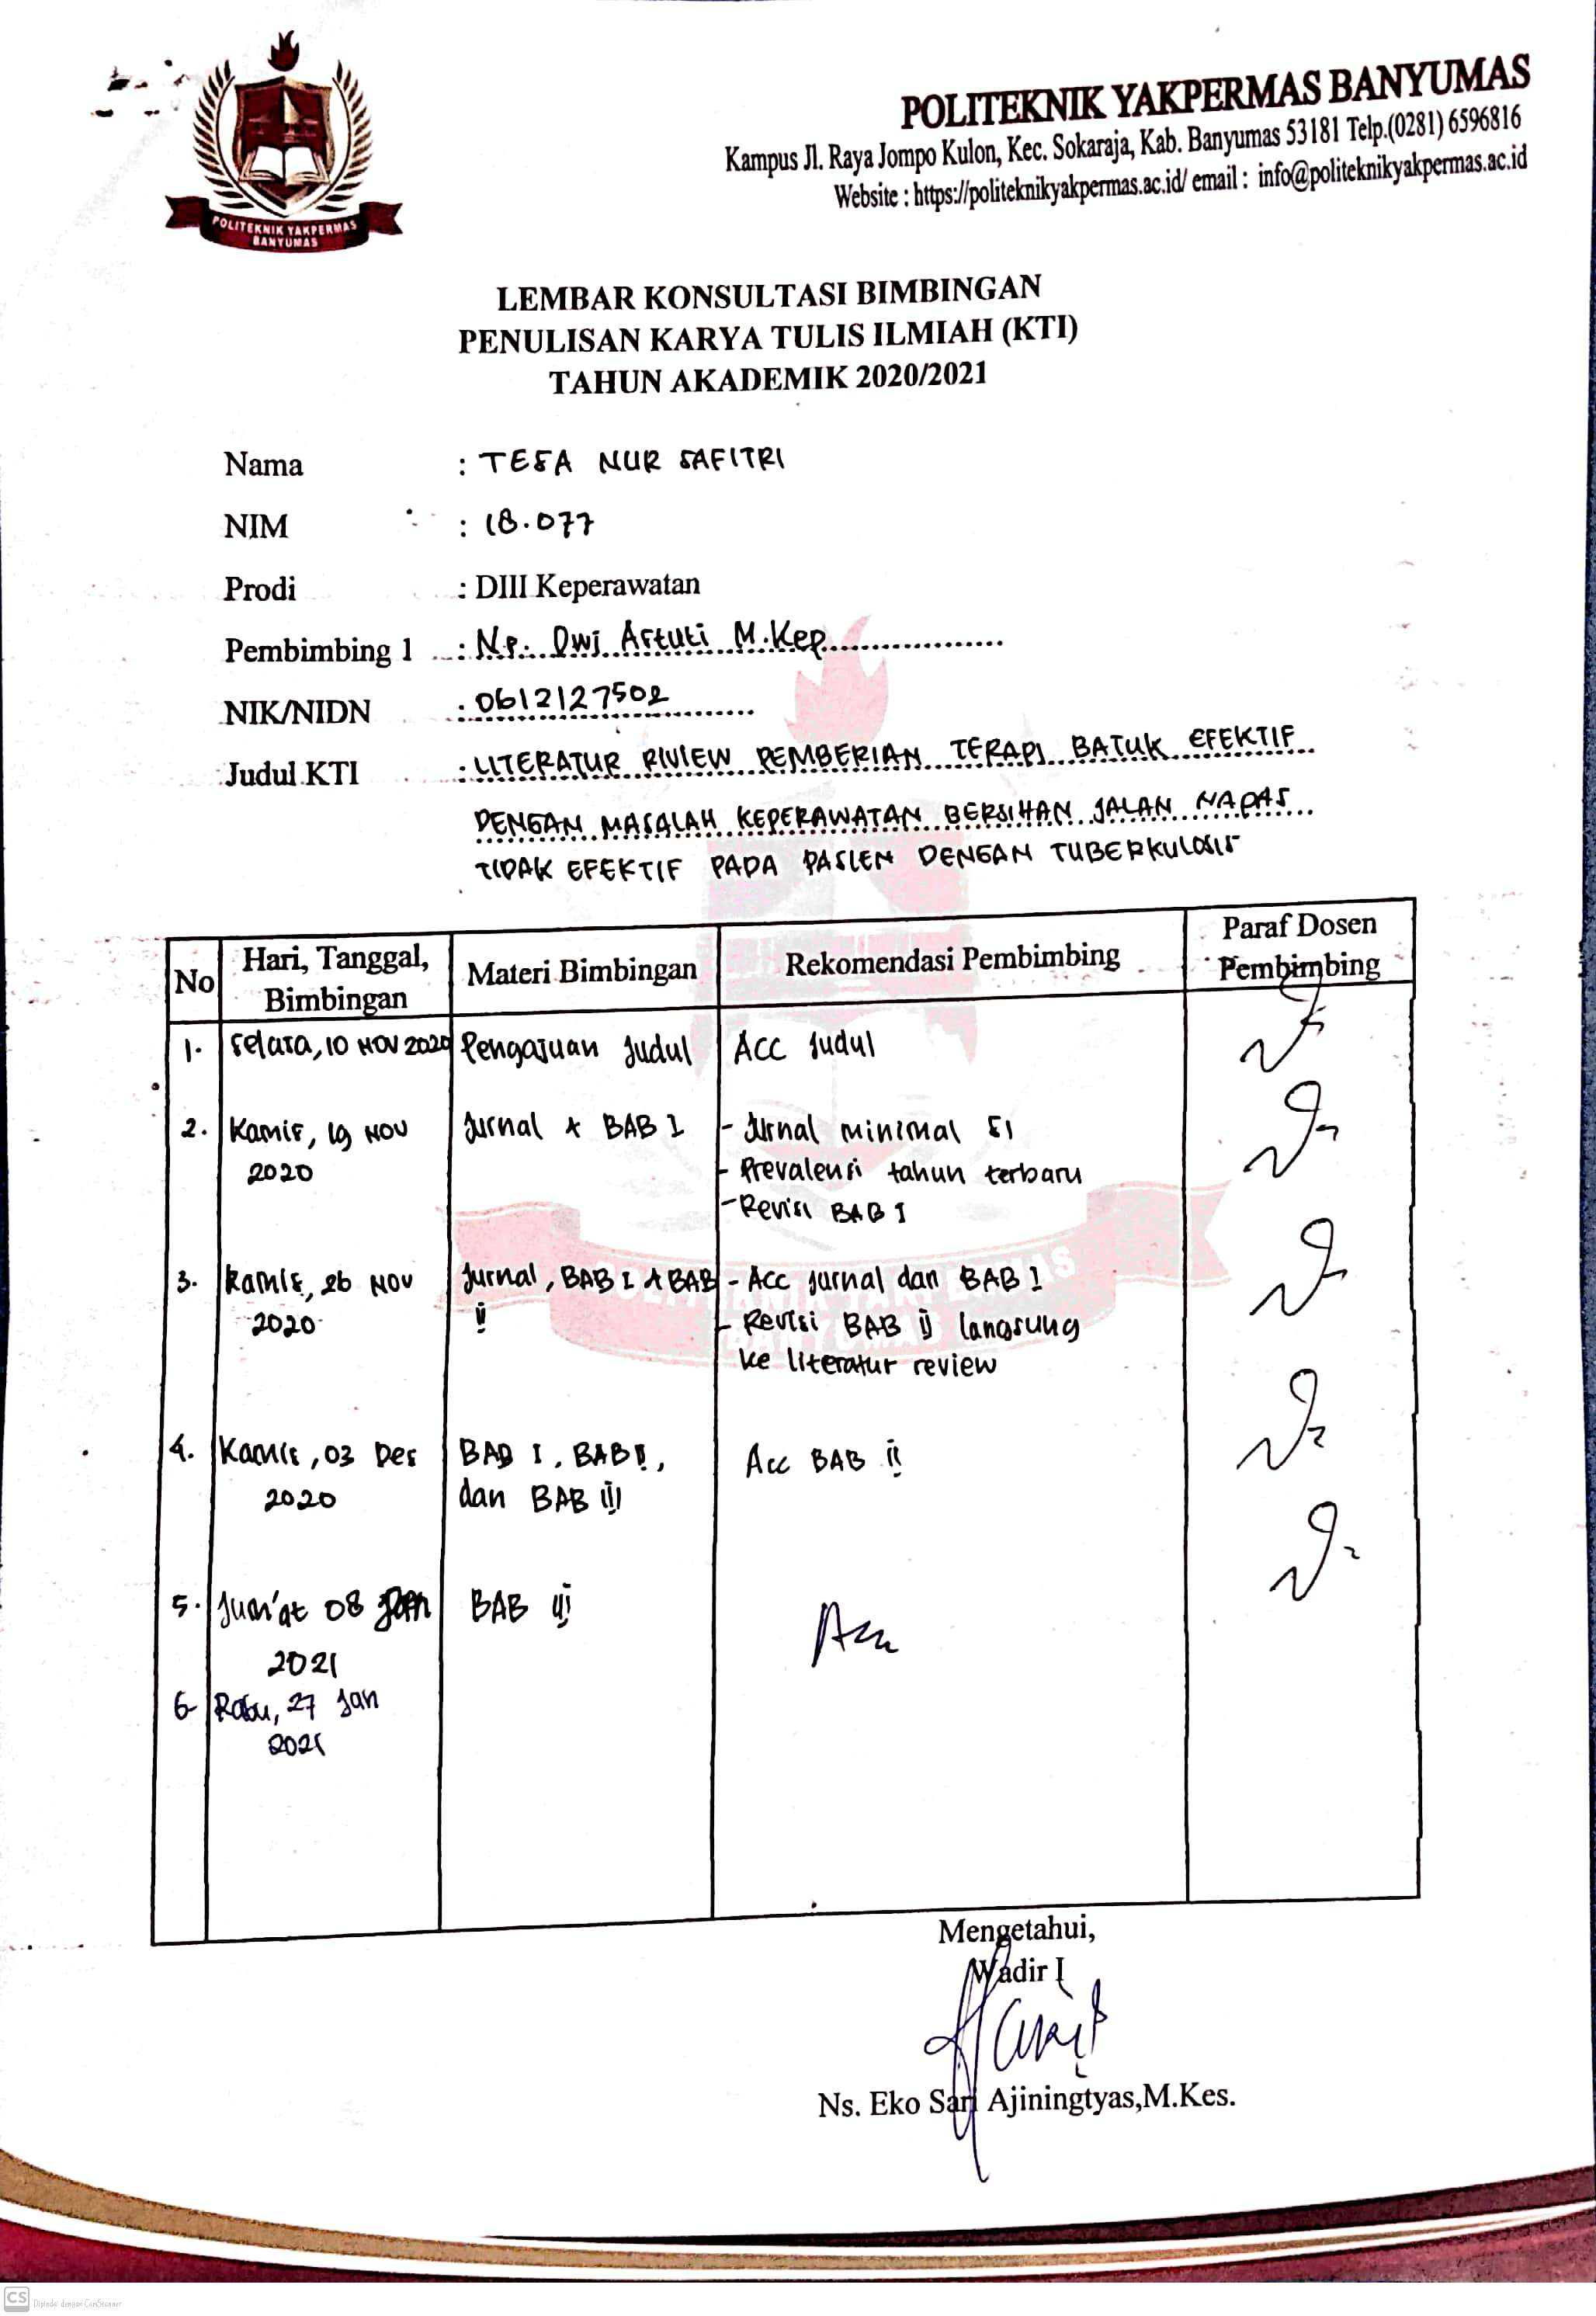 POLITEKNIK YAKPERMAS
BANYUMAS
POLITEKNIK YAKPERMAS BANYUMAS
Kampus Jl. Raya Jompo Kulon, Kec. Sokaraja, Kab. Banyumas 53181 Telp.(0281) 6596816
Website : https://politeknikyakpermas.ac.id/ email : info@politeknikyakpermas.ac.id
LEMBAR KONSULTASI BIMBINGAN
PENULISAN KARYA TULIS ILMIAH (KTI)
TAHUN AKADEMIK 2020/2021
Nama : TESA NUR SAFITRI
NIM : 18.077
Prodi : DIII Keperawatan
Pembimbing 1 : Ns. Dwi Astuti M.Kep
NIK/NIDN : 0612127502
Judul KTI : LITERATUR RIVIEW PEMBERIAN TERAPI BATUK EFEKTIF
DENGAN MASALAH KEPERAWATAN BERSIHAN JALAN NAPAS
TIDAK EFEKTIF PADA PASIEN DENGAN TUBERKULOSIS
No Hari, Tanggal, Bimbingan Materi Bimbingan Rekomendasi Pembimbing Paraf Dosen Pembimbing
1. Selasa, 10 NOV 2020 Pengajuan Judul ACC Judul
2. Kamis, 19 NOV Jurnal & BAB I - Jurnal minimal S1
2020 - Prevalensi tahun terbaru
- Revisi BAB I
3. Kamis, 26 NOV Jurnal, BAB I & BAB - Acc jurnal dan BAB I
2020 II - Revisi BAB II langsung
ke literatur review
4. Kamis, 03 Des BAB I, BAB II, Acc BAB II
2020 dan BAB III
5. Jum'at 08 Jan BAB III Acc
2021
6 Rabu, 27 Jan
2021
POLITEKNIK YAKPERMAS
BANYUMAS
Mengetahui,
Wadir I
Ns. Eko Sari Ajiningtyas,M.Kes.
CS Dipindai dengan CamScanner